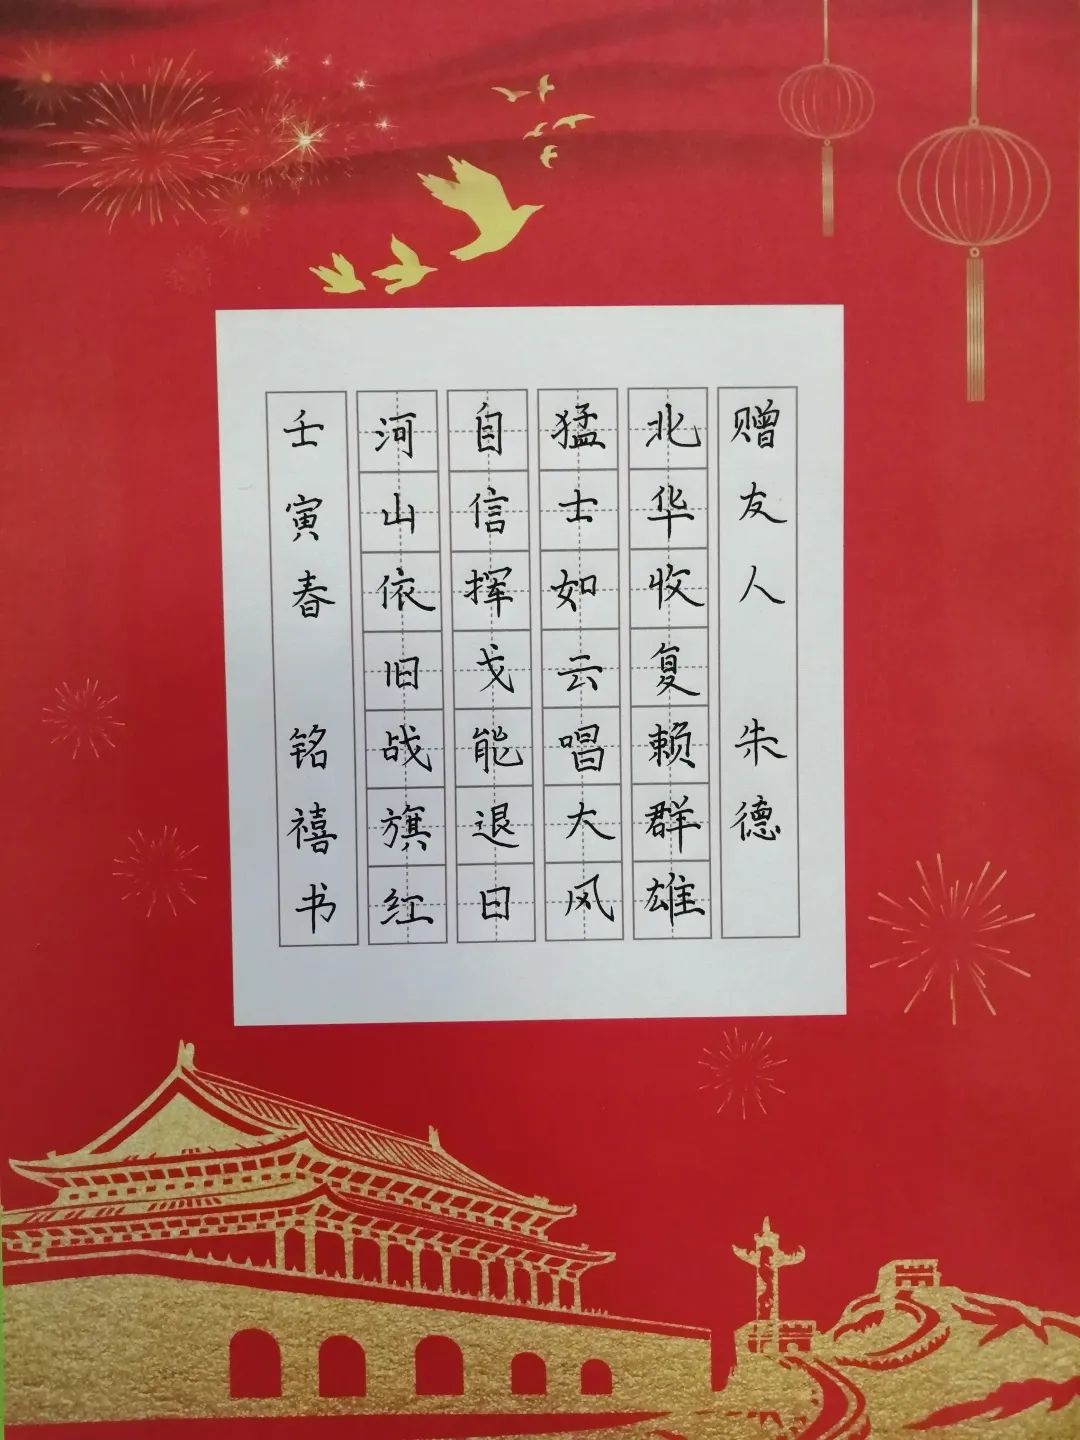 赠友人 朱德
北华收复赖群雄
猛士如云唱大风
自信挥戈能退日
河山依旧战旗红
壬寅春 铭禧书